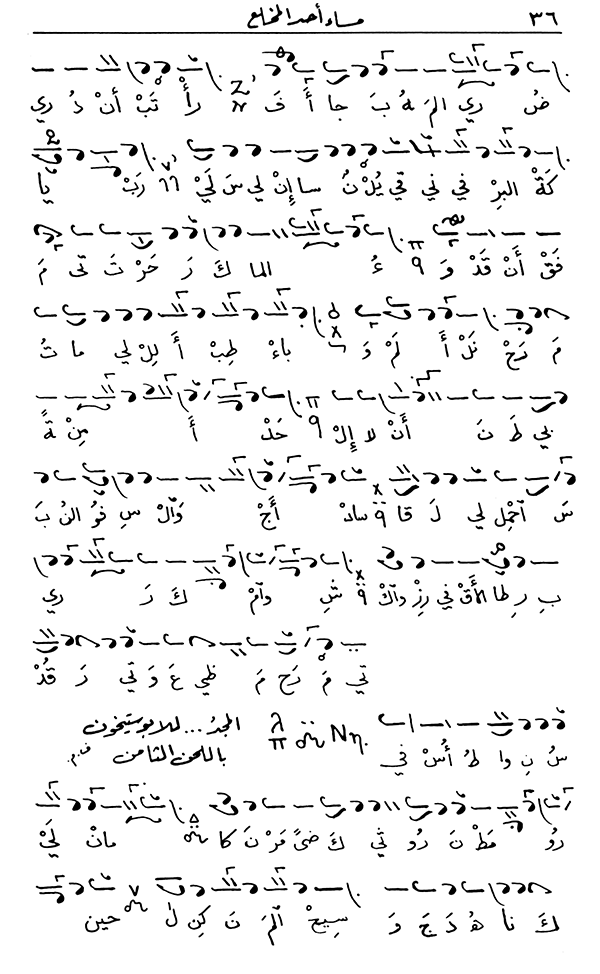 ٣٦ مساء أحد المخلع
ضُ ري المَ هُ بَ جا أَ فَ رأْ تَبْ أنْ دُ ري
كَةْ البِرْ في ني قي يُلْ نُ سا إنْ لي سَ لَيْ رَبْ يا
فَقْ أَنْ قَدْ وَ ءُ الما كَ رَ حَرْ تَ تى مَ
مَ رَحْ نَلْ أَ لَمْ وَ باءْ طِبْ أَ لِلْ لي ما تُ
بي طَ نَ أَنْ لا إلْ حَدْ أَ مِنْ ةً
سَ احْمِل لي لَ قا سادْ أَجْ وَالْ سِ فُو النُ بَ
بِ رِ طا الأَقْ في رِزْ وآكْ شِ وآمْ كَ رَ ري
تي مَ رَحْ مَ ظي عَ وَ تي رَ قُدْ
المجدُ... للابوستيخون
سُ نِ وا طُ أُسْ في باللحن الثامن
رُو مَطْ نَ رُو ثي كَ ضىً مَرْ نَ كا مانْ لَيْ
كَ نا هُ دَ جَ وَ سيحْ الْمَ نَ كِنْ لٰ حين